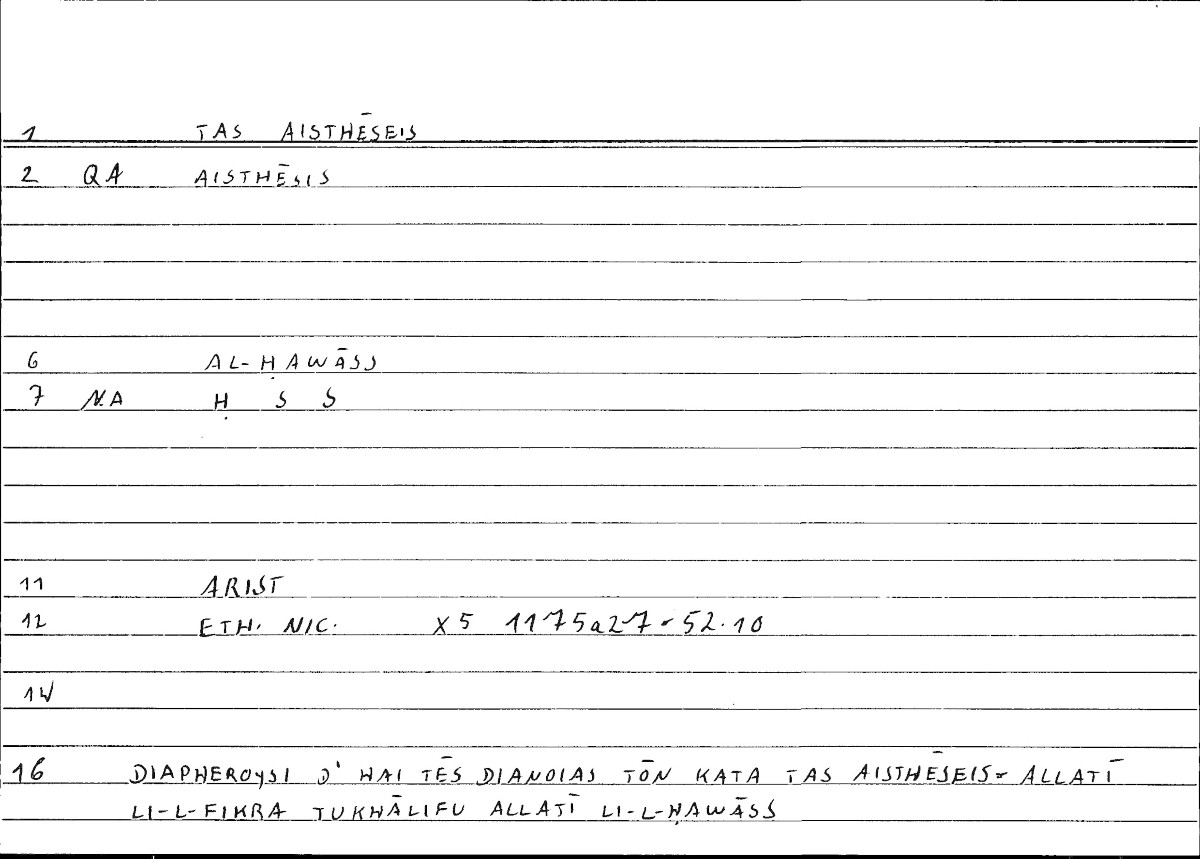 1 TAS AISTHĒSEIS
2 QA AISTHĒSIS
6 AL-ḤAWĀSS
7 NA Ḥ S S
11 ARIST
12 ETH. NIC. X5 1175a27 - 52.10
14
16 DIAPHEROYSI D' HAI TĒS DIANOIAS TŌN KATA TAS AISTHĒSEIS = ALLATĪ
LI-L-FIKRA TUKHĀLIFU ALLATĪ LI-L-ḤAWĀSS